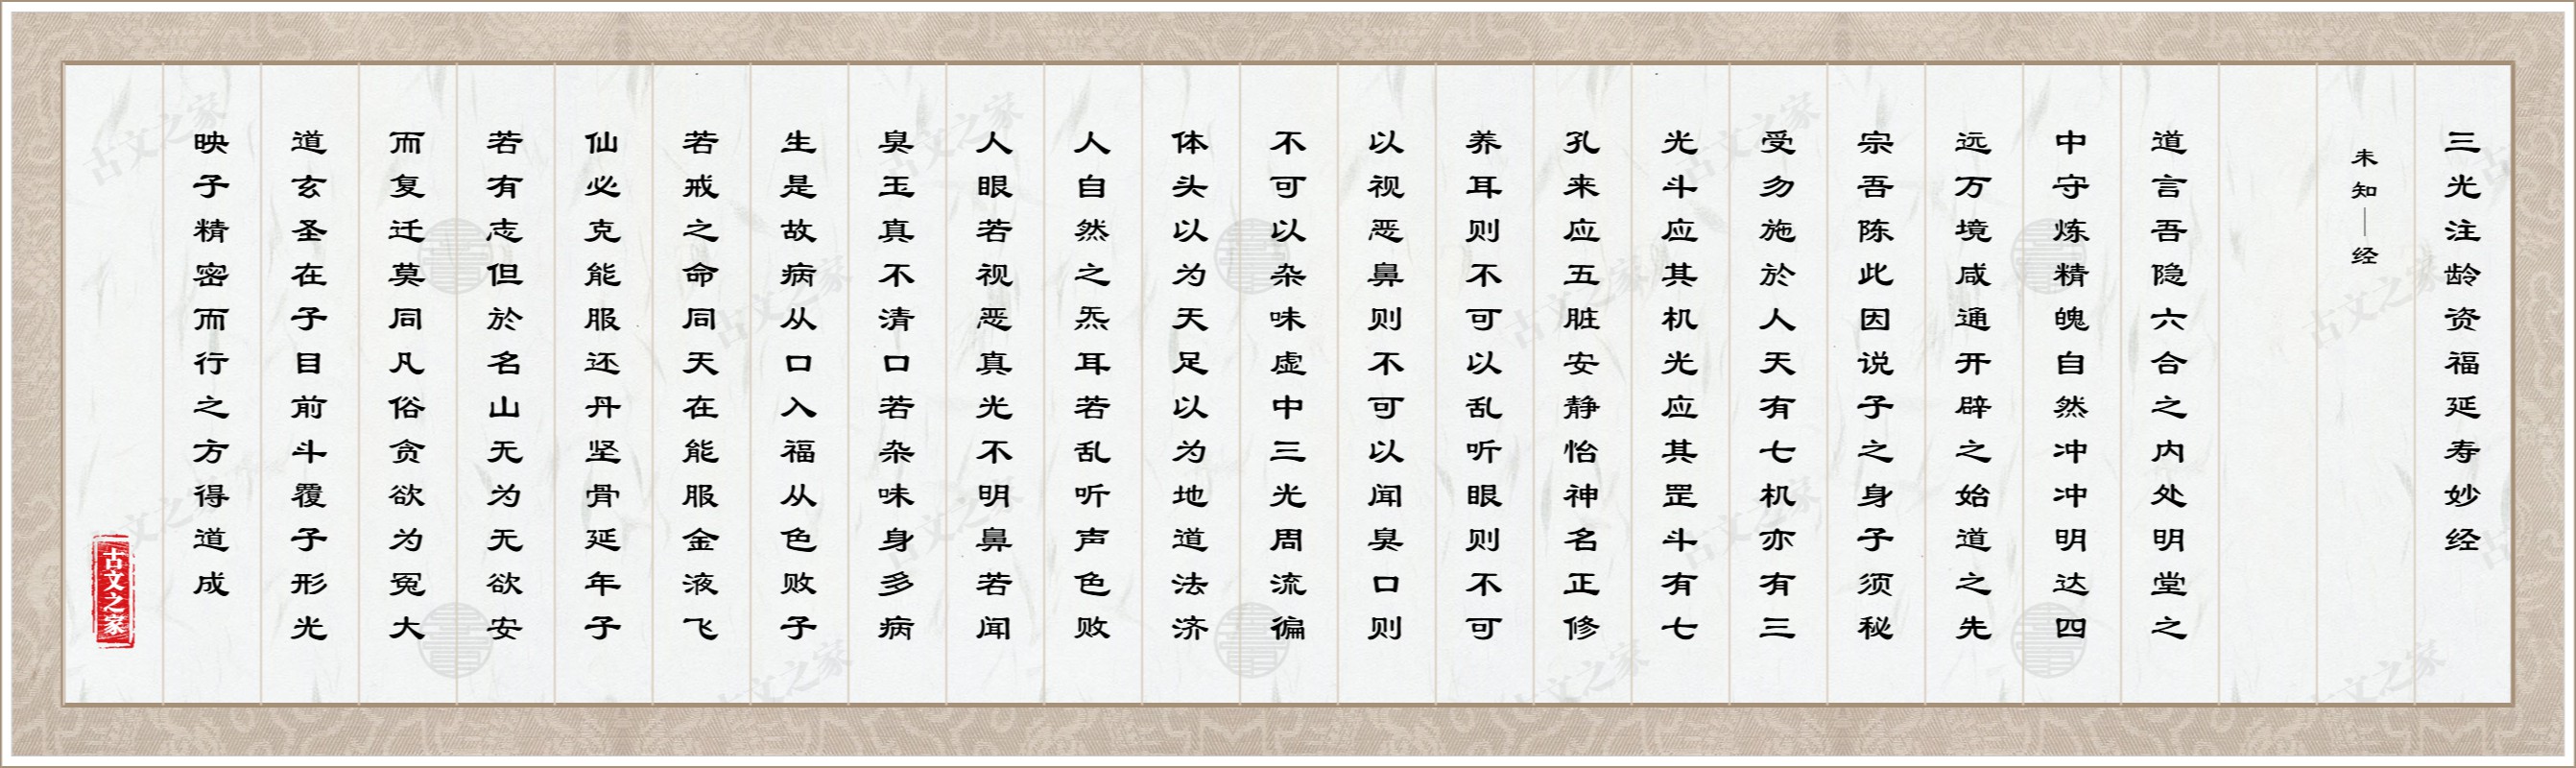 三光注龄资福延寿妙经
未知｜经
道言吾隐六合之内处明堂之
中守炼精魄自然冲冲明达四
远万境咸通开辟之始道之先
宗吾陈此因说子之身子须秘
受勿施於人天有七机亦有三
光斗应其机光应其罡斗有七
孔来应五脏安静怡神名正修
养耳则不可以乱听眼则不可
以视恶鼻则不可以闻臭口则
不可以杂味虚中三光周流徧
体头以为天足以为地道法济
人自然之炁耳若乱听声色败
人眼若视恶真光不明鼻若闻
臭玉真不清口若杂味身多病
生是故病从口入福从色败子
若戒之命同天在能服金液飞
仙必克能服还丹坚骨延年子
若有志但於名山无为无欲安
而复迁莫同凡俗贪欲为冤大
道玄圣在子目前斗覆子形光
映子精密而行之方得道成
古文之家